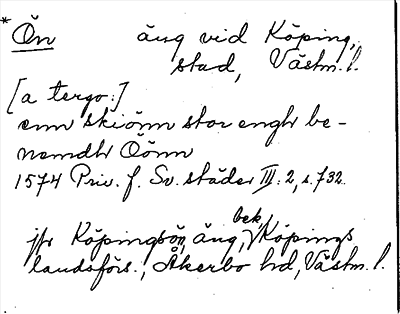 * Ön äng vid Köping,
stad, Västm. l.
[a tergo:]
enn skiönn stor enghr be-
nemdhr Öönn
1574 Priv. f. Sv. städer III: 2, s. 732.
jfr Köpingsön, äng, bek, Köpings
landsförs., Åkerbo hd, Västm. l.